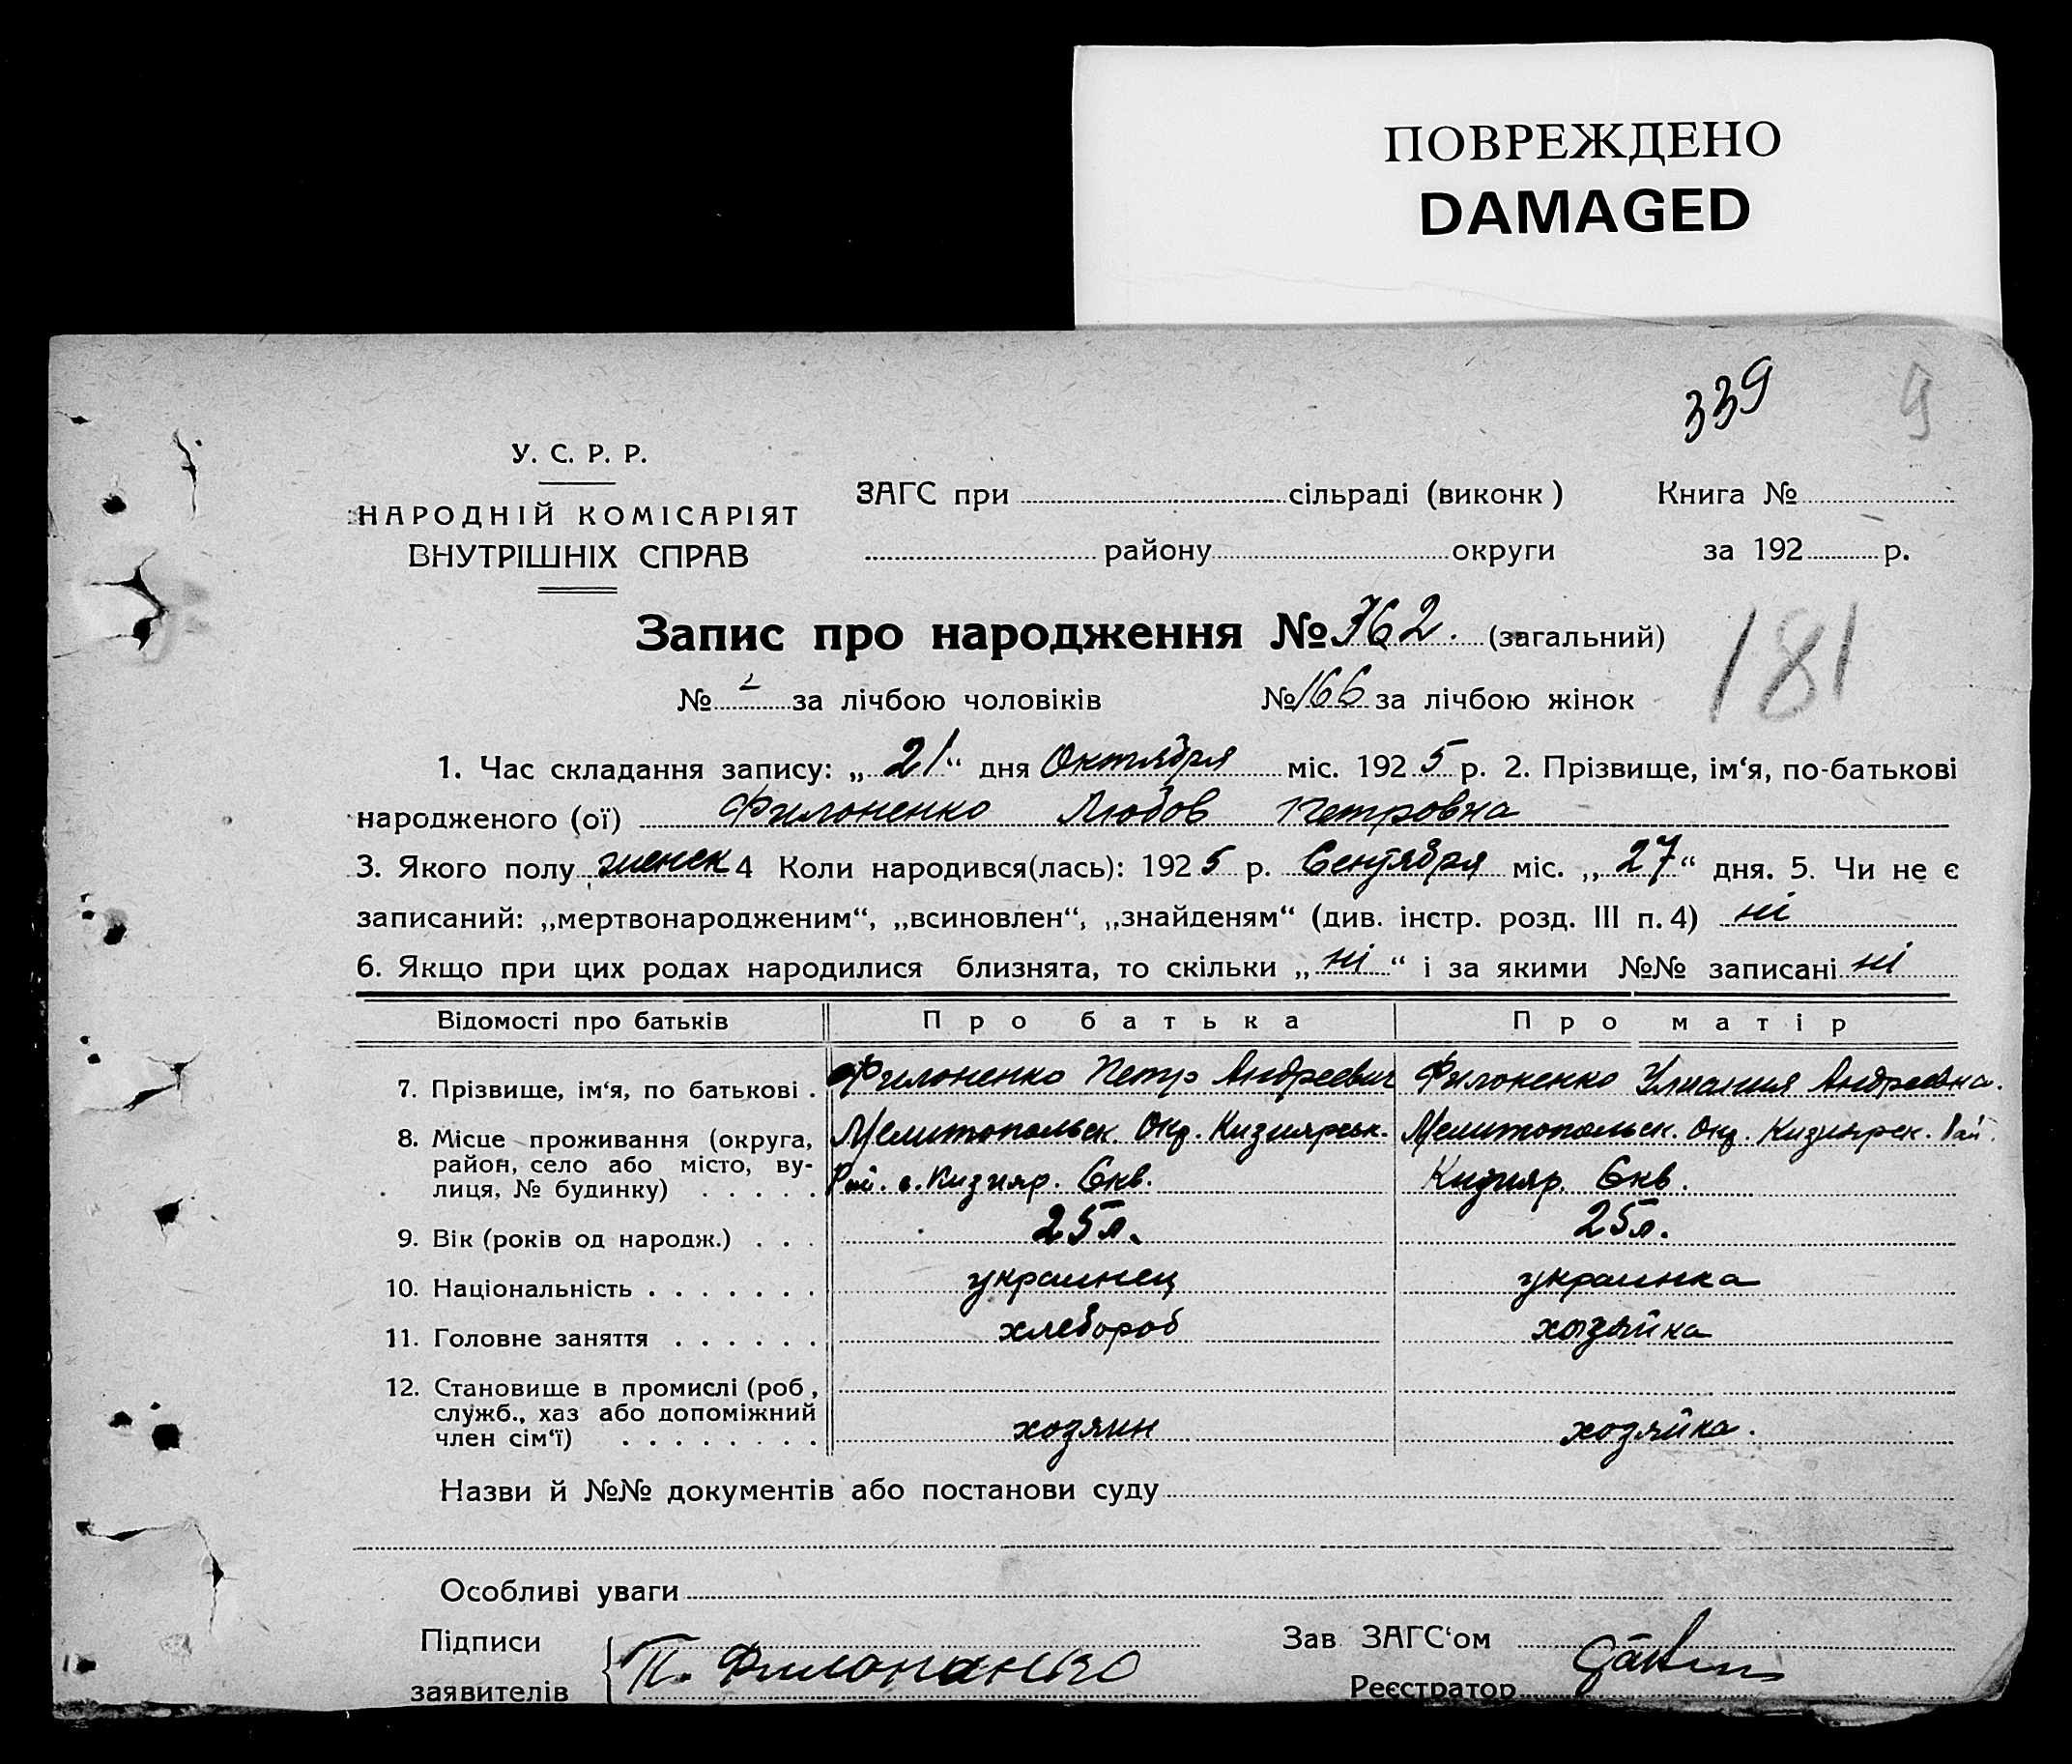 ПОВРЕЖДЕНО
DAMAGED
339 9
У. С. Р. Р.
НАРОДНІЙ КОМІСАРІЯТ
ВНУТРІШНІХ СПРАВ
ЗАГС при сільраді (виконк) Книга №
району округи за 192 р.
Запис про народження № 362. (загальний)
181
№ за лічбою чоловіків № 166 за лічбою жінок
1. Час складання запису: „21“ дня Октября міс. 1925 р. 2. Прізвище, ім‘я, по-батькові
народженого (ої) Филоненко Любов Петровна
3. Якого полу женск 4 Коли народився(лась): 1925 р. Сентября міс. „27“ дня. 5. Чи не є
записаний: „мертвонародженим“, „всиновлен“, „знайденям“ (див. інстр. розд. III п. 4) ні
6. Якщо при цих родах народилися близнята, то скільки „ні“ і за якими №№ записані ні
Відомості про батьків Про батька Про матір
7. Прізвище, ім‘я, по батькові . Филоненко Петр Андреевич Филоненко Андреевна.
8. Місце проживання (округа, Мелитопольск. Окр. Кизиярск. Мелитопольск. Окр. Кизиярск. Рай.
район, село або місто, ву-
лиця, № будинку) . . . . . Рай. с. Кизияр. Кизияр.
9. Вік (років од народж.) . . . 25 л. 25 л.
10. Національність . . . . . . . украинец украинка
11. Головне заняття . . . . . . хлебороб хозяйка
12. Становище в промислі (роб,
служб., хаз або допоміжний
член сім‘ї) . . . . . . . . хозяин хозяйка.
Назви й №№ документів або постанови суду
Особливі уваги
Підписи Зав ЗАГС‘ом
заявителів П. Филонанко Реєстратор